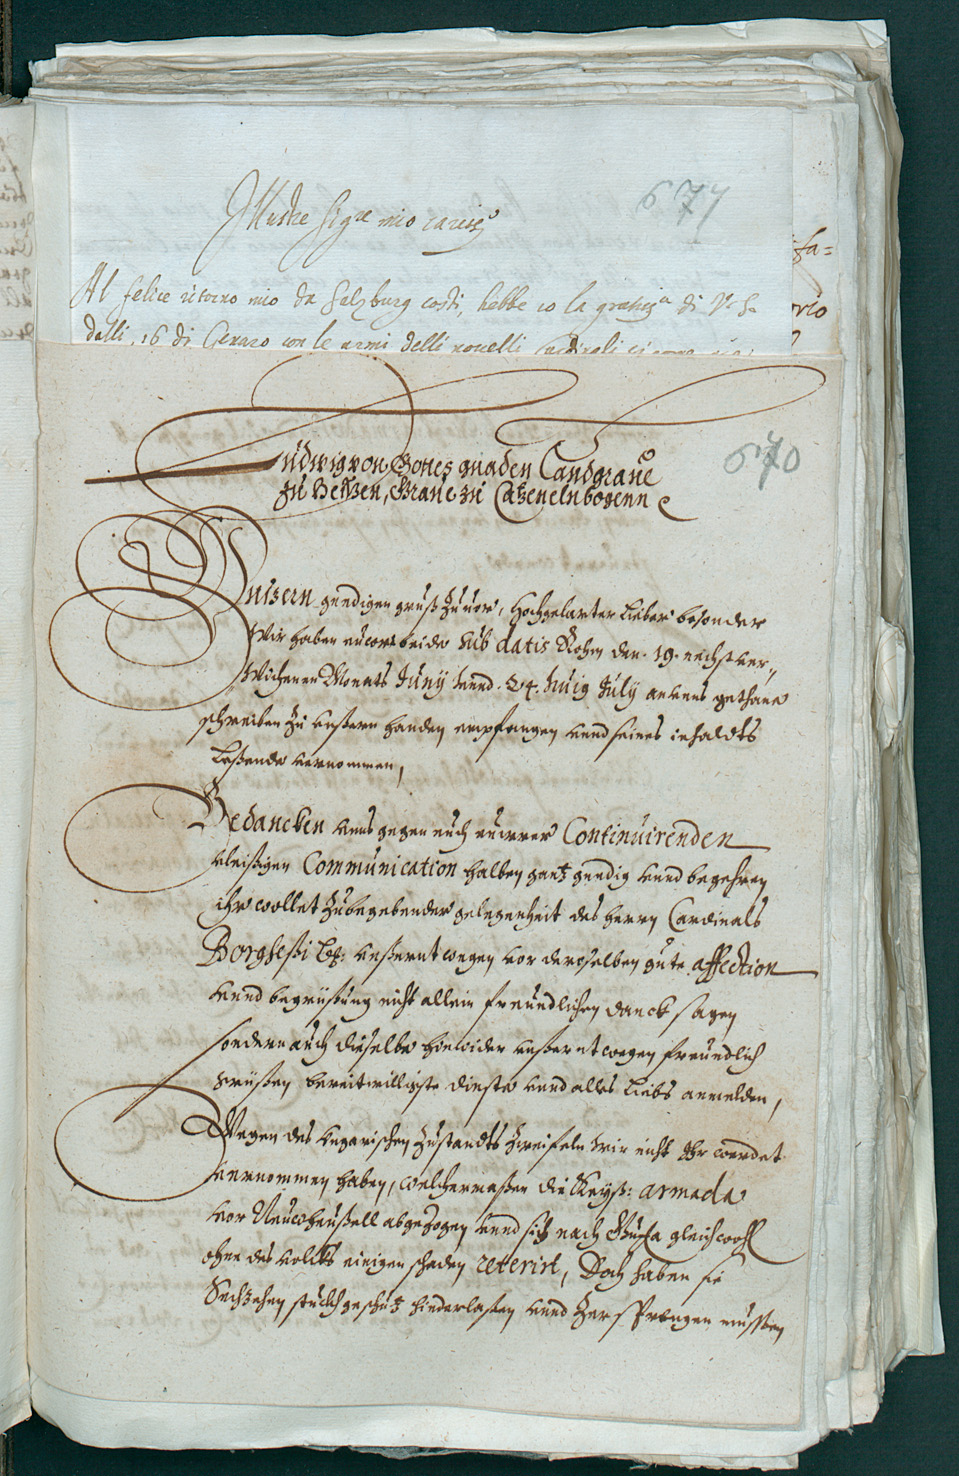 677
Illustre Sigre mio cariss.o
Al felice ritorno mio da Salzburg costi, hebbe io la gratiss.a di V. S.
delli 16 di Genaro con le armi delli novelli Cardinali
sa=
rio
670
Ludwig von Gottes gnaden Landgraue
zu Hessen, Graue zu Catzenelnbogenn
Unsern gnedigen gruß zuuor, Hochgelarter lieber besonder
Wir haben eucere beide sub datis Rohm den 19. nechst ver„
wichenen Monats Junÿ vnnd 24. huig July an vnns gethane
schreiben zu vnßern handen empfangen vnnd seines inhaldts
leßende vernommen,
Bedancken vnns gegen euch euwerer Continuirenden
vleißigen Communication halben gantz gnedig vnnd begehren
ihr wollet zubegebender gelegenheit des herrn Cardinals
Borghesi Ld: vnßerntwegen vor deroselben gute affection
vnnd begrüßung nicht allein freundlichen danck sagen
sondern auch dieselbe hinwider vnßerntwegen freundlich
grüßen bereitwilligste dienste vnnd alles liebs anmelden,
Wegen des vngarischen zustandts zweifeln wir nicht Ihr werdet
vernommen haben, welchermaßen die Keyß: armada
vor Neuwheußell abgezogen vnnd sich nach gleichwohl
ohne des volcks einigen schaden reterirt, Doch haben sie
Sechzehen stückh geschütz hinderlaßen vnnd zersprengen müssen